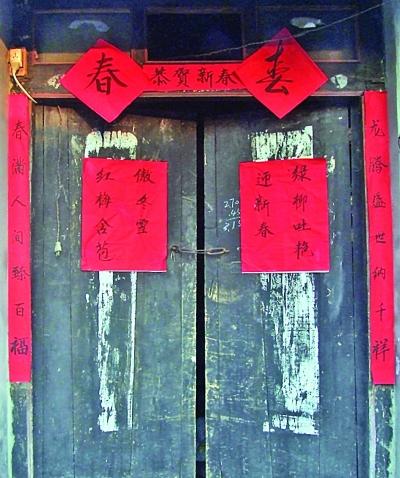 春
恭贺新春
春
龙腾盛世纳千祥
春满人间臻百福
绿柳吐艳
迎新春
傲冬雪
红梅含苞
270